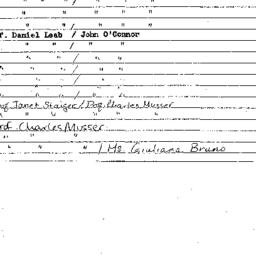 " " " "
" " / " "
f. Daniel Leab / John O'Connor
" " / " "
" " / " "
" " / " "
" " / " "
" " / " "
of Janet Staiger / Prof. Charles Musser
" " " "
rof. Charles Musser
" " "
" " " / Ms Giuliana Bruno